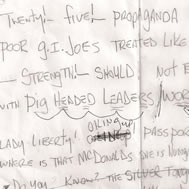 TWENTY! FIVE! PROPAGANDA
POOR G.I. JOES TREATED LIKE
STRENGTH! SHOULD! NOT B
WITH PIG HEADED LEADERS /WOR
OILING UP
LADY LIBERTY! PASS POOR
WHERE IS THAT McDONALDS SHE IS HUNG
DO YOU KNOW? THE SILVER